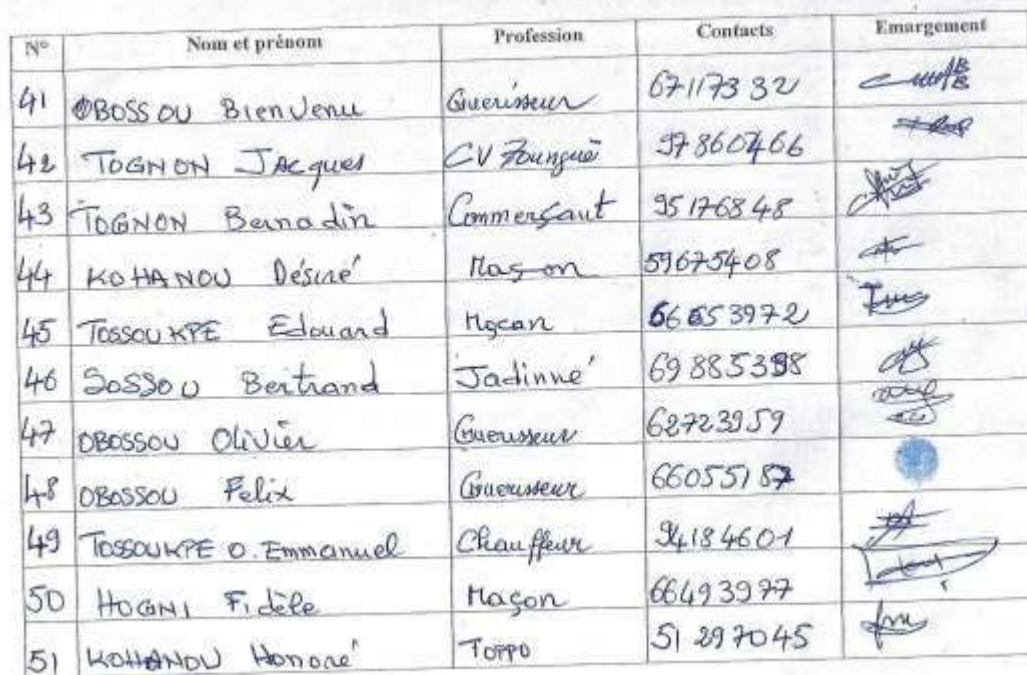 N° Nom et prénom Profession Contacts Emargement
41 OBOSSOU Bienvenu Guerisseur 67117332
42 TOGNON JAcques CV Zounguè 97860466
43 TOGNON Bernadin Commerçant 95176848
44 KOHANOU Désiré Maçon 59675408
45 TOSSOUKPE Edouard 66653972
46 SOSSOU Bertrand Jadinné 69885398
47 OBOSSOU Olivier Guerisseur 62723959
48 OBOSSOU Felix Guerisseur 66055187
49 TOSSOUKPE O. Emmanuel Chauffeur 94184601
50 HOGNI Fidèle Maçon 66493977
51 KOHANOU Honoré TOPPO 51297045